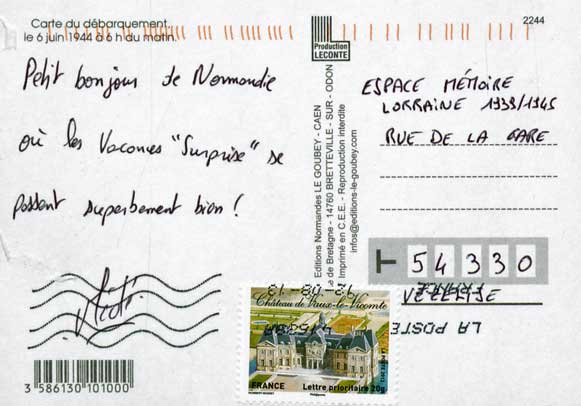 Carte du débarquement
le 6 juin 1944 à 6 h du matin.
Production
LECONTE
2244
Petit bonjour de Normandie
où les Vacances "Surprise" se
passent superbement bien !
Editions Normandes LE GOUBEY - CAEN
de Bretagne - 14760 BRETTEVILLE - SUR - ODON
Imprimé en C.E.E. - Reproduction interdite
infos@editions-le-goubey.com
ESPACE MÉMOIRE
LORRAINE 1939/1945
RUE DE LA GARE
T 54330
VEZELISE
FRANCE
LA POSTE
Château de Vaux-le-Vicomte
FRANCE
Lettre prioritaire 20g
3 586130 101000